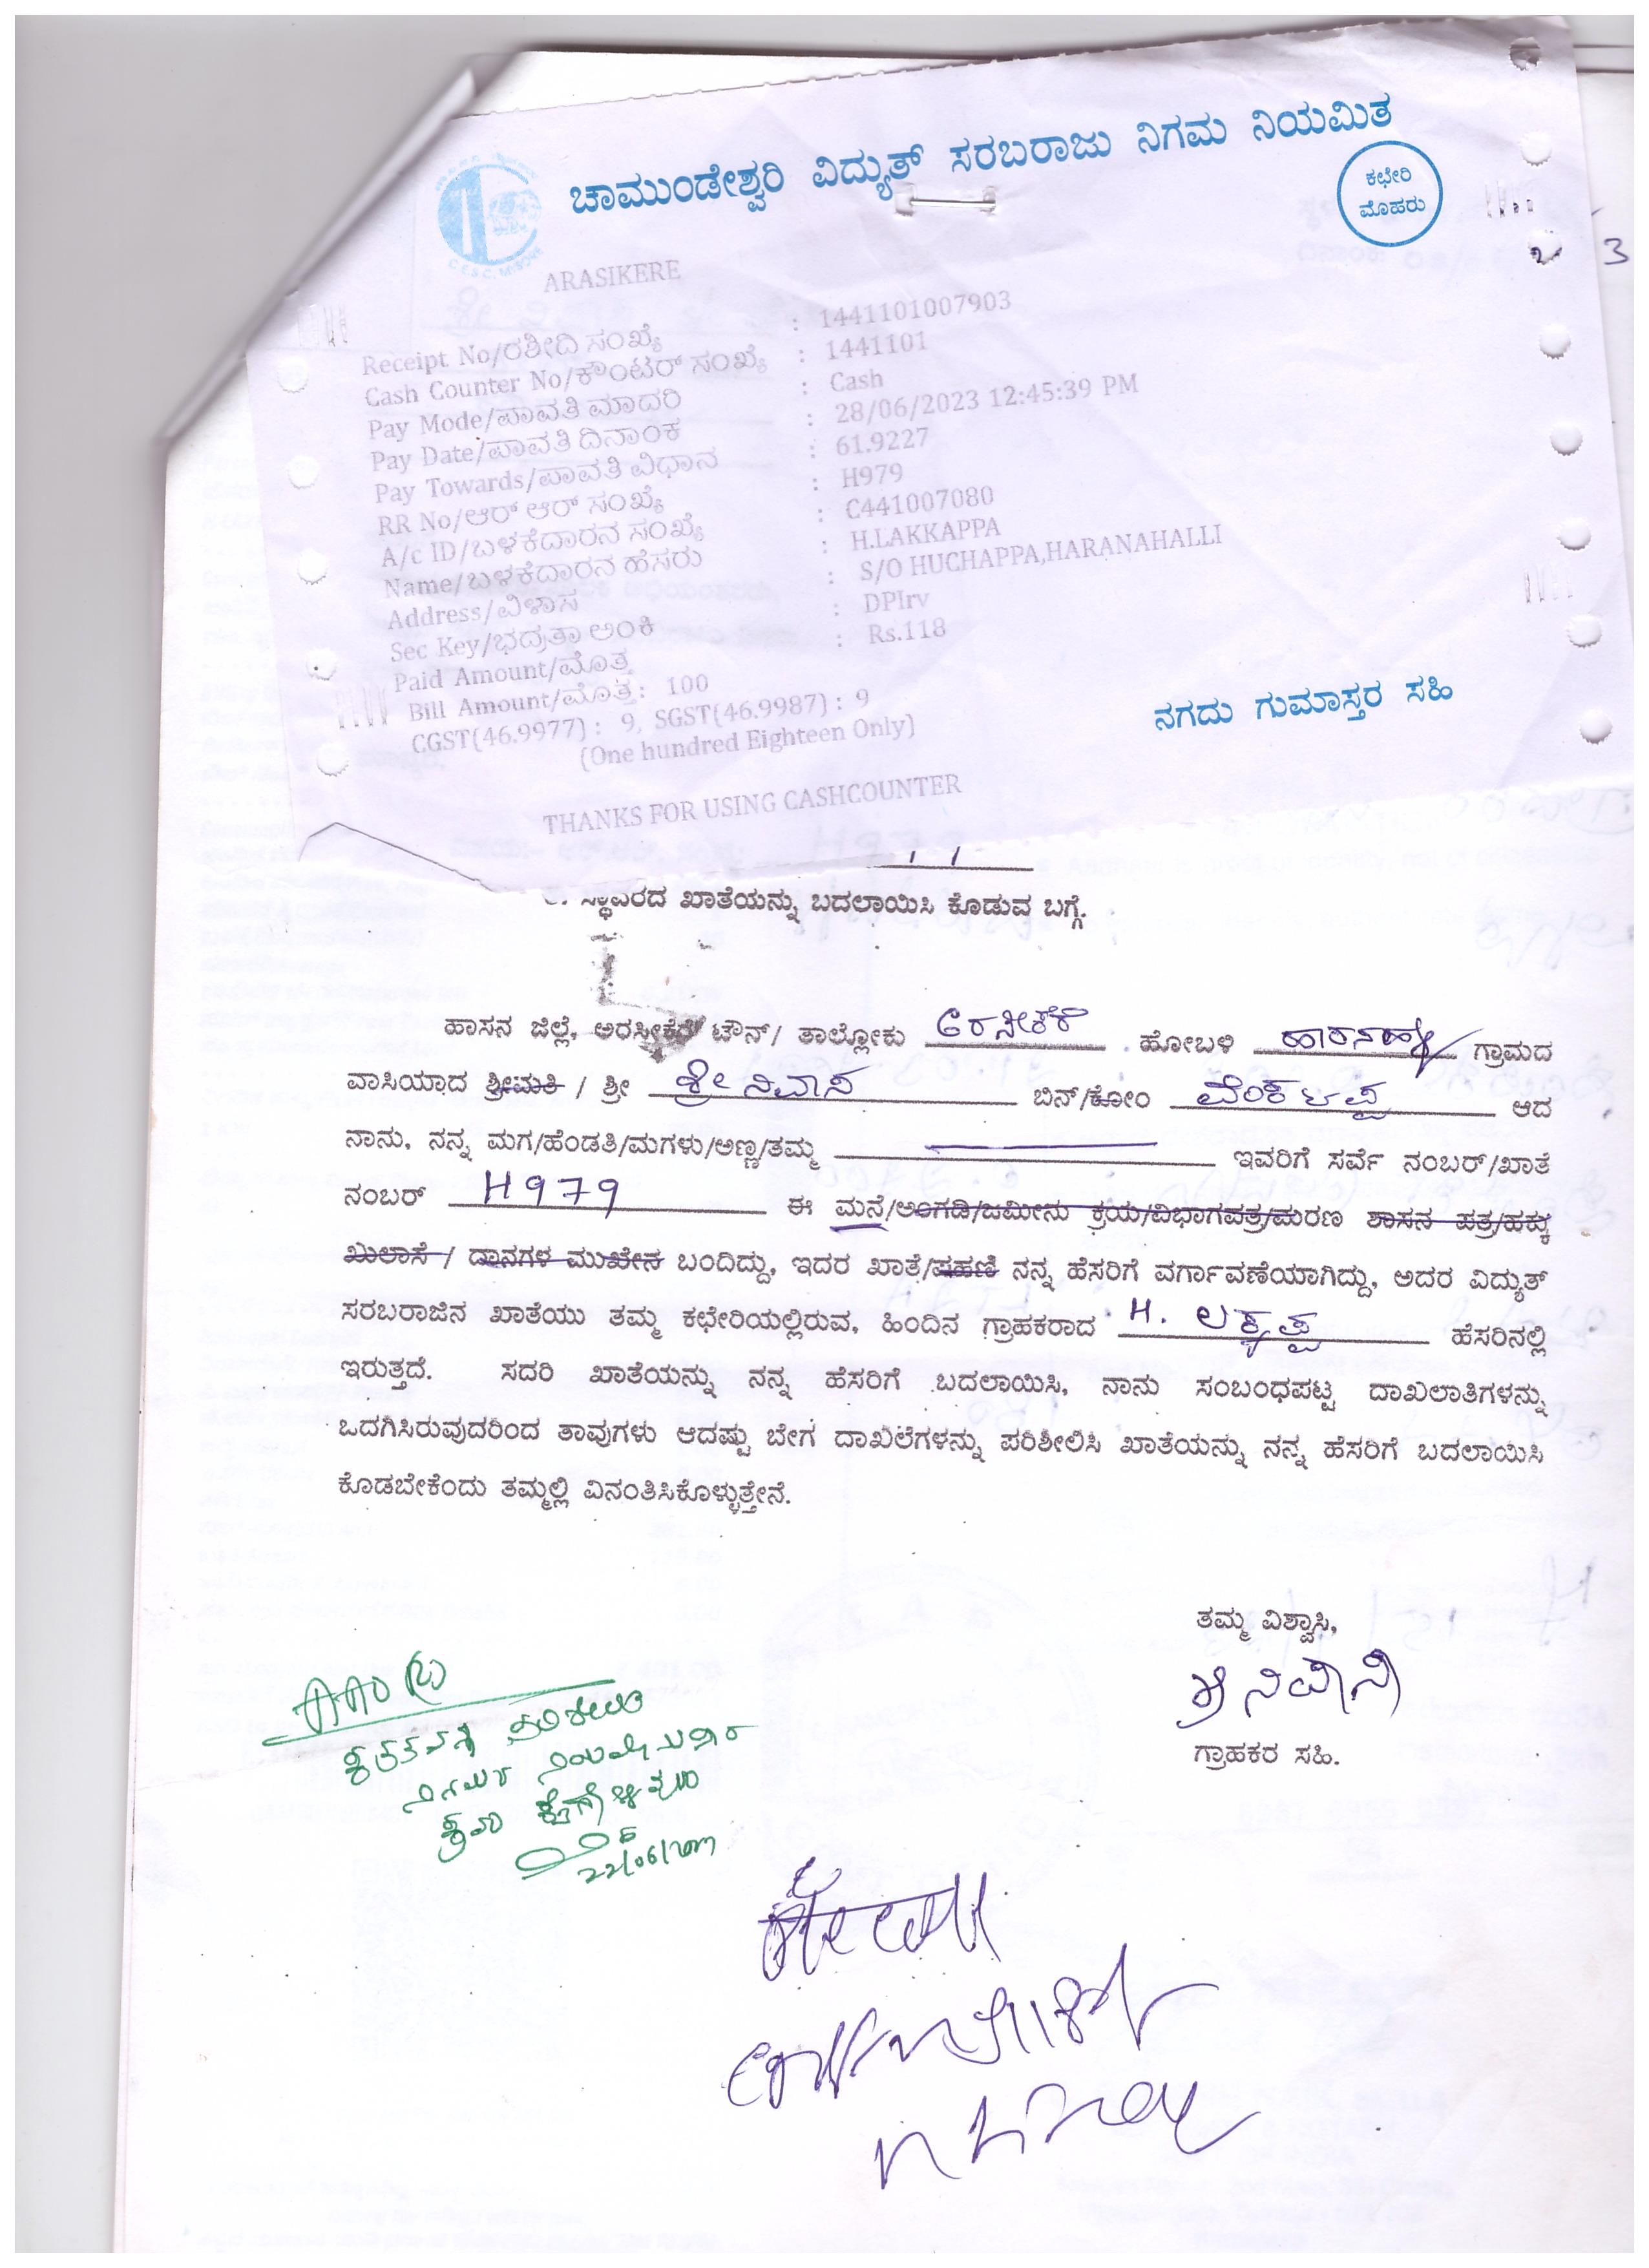 ಚಾಮುಂಡೇಶ್ವರಿ ವಿದ್ಯುತ್ ಸರಬರಾಜು ನಿಗಮ ನಿಯಮಿತ
ಕಛೇರಿ
ಮೊಹರು
C.E.S.C. MYSORE
2 3
ARASIKERE
Receipt No/ರಶೀದಿ ಸಂಖ್ಯೆ : 1441101007903
Cash Counter No/ಕೌಂಟರ್ ಸಂಖ್ಯೆ : 1441101
Pay Mode/ಪಾವತಿ ಮಾದರಿ : Cash
Pay Date/ಪಾವತಿ ದಿನಾಂಕ : 28/06/2023 12:45:39 PM
Pay Towards/ಪಾವತಿ ವಿಧಾನ : 61.9227
RR No/ಆರ್ ಆರ್ ಸಂಖ್ಯೆ : H979
A/c ID/ಬಳಕೆದಾರನ ಸಂಖ್ಯೆ : C441007080
Name/ಬಳಕೆದಾರನ ಹೆಸರು : H.LAKKAPPA
Address/ವಿಳಾಸ : S/O HUCHAPPA,HARANAHALLI
Sec Key/ಭದ್ರತಾ ಅಂಕಿ : DPIrv
Paid Amount/ಮೊತ್ತ : Rs.118
Bill Amount/ಮೊತ್ತ: 100
CGST(46.9977) : 9, SGST(46.9987) : 9
(One hundred Eighteen Only)
ನಗದು ಗುಮಾಸ್ತರ ಸಹಿ
THANKS FOR USING CASHCOUNTER
ಸ್ಥಾವರದ ಖಾತೆಯನ್ನು ಬದಲಾಯಿಸಿ ಕೊಡುವ ಬಗ್ಗೆ.
ಹಾಸನ ಜಿಲ್ಲೆ, ಅರಸೀಕೆರೆ ಟೌನ್/ ತಾಲ್ಲೋಕು ಅರಸೀಕೆರೆ ಹೋಬಳಿ ಹಾರನಹಳ್ಳಿ ಗ್ರಾಮದ
ವಾಸಿಯಾದ ಶ್ರೀಮತಿ / ಶ್ರೀ ಶ್ರೀನಿವಾಸ ಬಿನ್/ಕೋಂ ವೆಂಕಟಪ್ಪ ಆದ
ನಾನು, ನನ್ನ ಮಗ/ಹೆಂಡತಿ/ಮಗಳು/ಅಣ್ಣ/ತಮ್ಮ ಇವರಿಗೆ ಸರ್ವೆ ನಂಬರ್/ಖಾತೆ
ನಂಬರ್ H979 ಈ ಮನೆ/ಅಂಗಡಿ/ಜಮೀನು ಕ್ರಯ/ವಿಭಾಗಪತ್ರ/ಮರಣ ಶಾಸನ ಪತ್ರ/ಹಕ್ಕು
ಖುಲಾಸೆ / ದಾನಗಳ ಮುಖೇನ ಬಂದಿದ್ದು, ಇದರ ಖಾತೆ/ಪಹಣಿ ನನ್ನ ಹೆಸರಿಗೆ ವರ್ಗಾವಣೆಯಾಗಿದ್ದು, ಅದರ ವಿದ್ಯುತ್
ಸರಬರಾಜಿನ ಖಾತೆಯು ತಮ್ಮ ಕಛೇರಿಯಲ್ಲಿರುವ, ಹಿಂದಿನ ಗ್ರಾಹಕರಾದ H. ಲಕ್ಕಪ್ಪ ಹೆಸರಿನಲ್ಲಿ
ಇರುತ್ತದೆ. ಸದರಿ ಖಾತೆಯನ್ನು ನನ್ನ ಹೆಸರಿಗೆ ಬದಲಾಯಿಸಿ, ನಾನು ಸಂಬಂಧಪಟ್ಟ ದಾಖಲಾತಿಗಳನ್ನು
ಒದಗಿಸಿರುವುದರಿಂದ ತಾವುಗಳು ಆದಷ್ಟು ಬೇಗ ದಾಖಲೆಗಳನ್ನು ಪರಿಶೀಲಿಸಿ ಖಾತೆಯನ್ನು ನನ್ನ ಹೆಸರಿಗೆ ಬದಲಾಯಿಸಿ
ಕೊಡಬೇಕೆಂದು ತಮ್ಮಲ್ಲಿ ವಿನಂತಿಸಿಕೊಳ್ಳುತ್ತೇನೆ.
ತಮ್ಮ ವಿಶ್ವಾಸಿ,
ಶ್ರೀನಿವಾಸ
ಗ್ರಾಹಕರ ಸಹಿ.